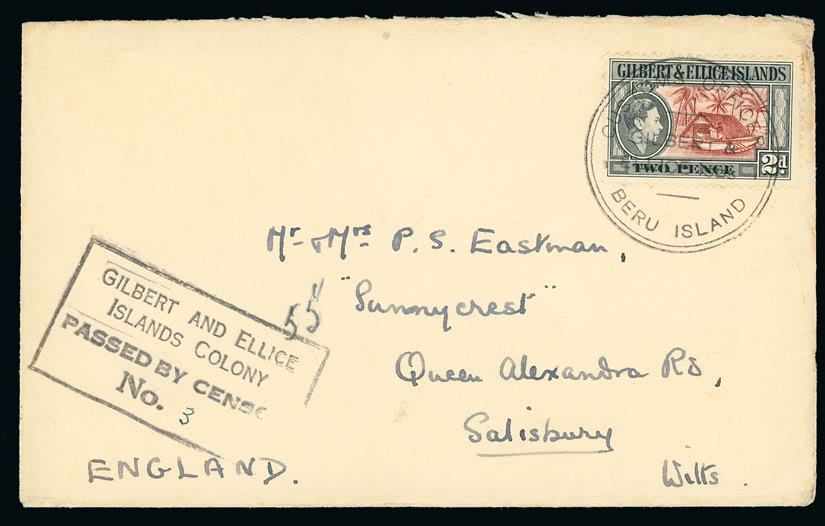 GILBERT & ELLICE ISLANDS
TWO PENCE
2d
CUSTOMS OFFICE
GILBERT &
BERU ISLAND
Mr & Mrs P. S. Eastman,
"Sunnycrest"
Queen Alexandra Rd,
Salisbury
Wilts.
ENGLAND.
55
GILBERT AND ELLICE
ISLANDS COLONY
PASSED BY CENSO
No. 3